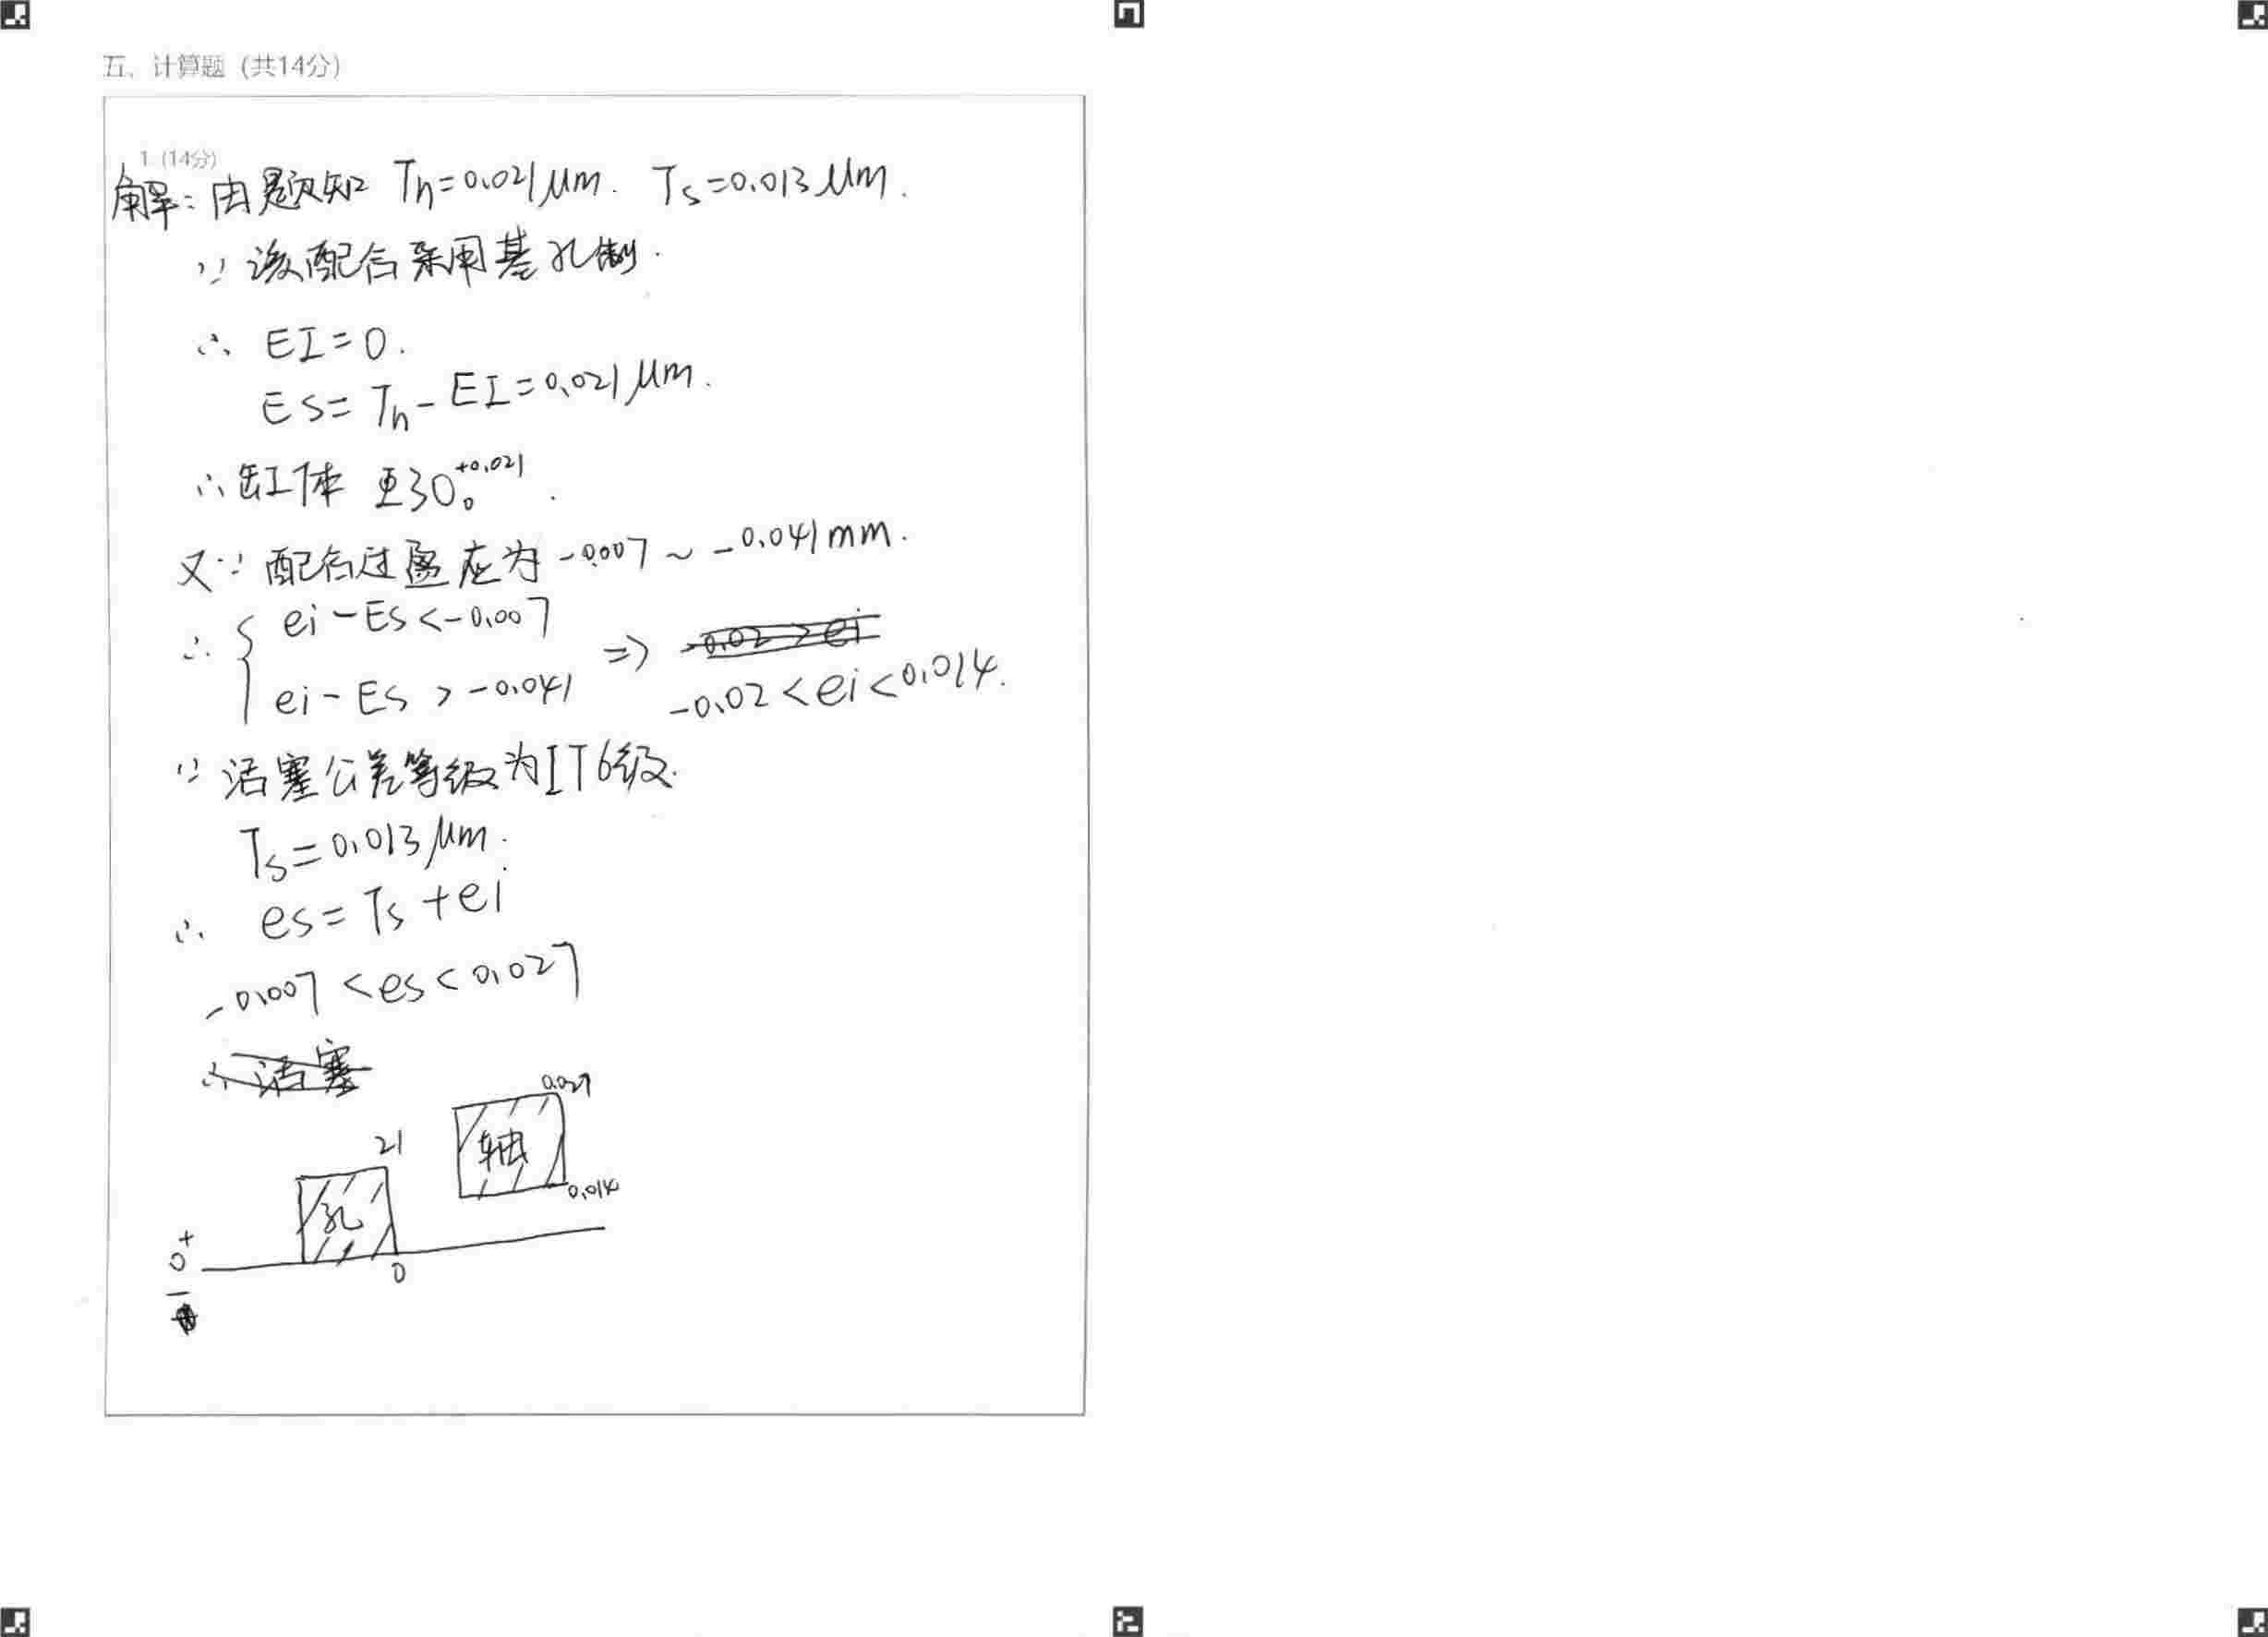 五、计算题 (共14分)
1 (14分)
解：由题知 Th=0.021μm. Ts=0.013μm.
∵ 该配合采用基孔制.
∴ EI=0.
ES=Th-EI=0.021μm.
∴缸体 Φ30 +0.021 0.
又∵ 配合过盈应为-0.007~-0.041mm.
∴ { ei-ES<-0.007
ei-ES>-0.041 ⇒ -0.02<ei<0.014.
∵ 活塞公差等级为IT6级.
Ts=0.013μm.
∴ es=Ts+ei
-0.007<es<0.027
∴活塞
0.027
21
轴
0.014
孔
+
0
0
-